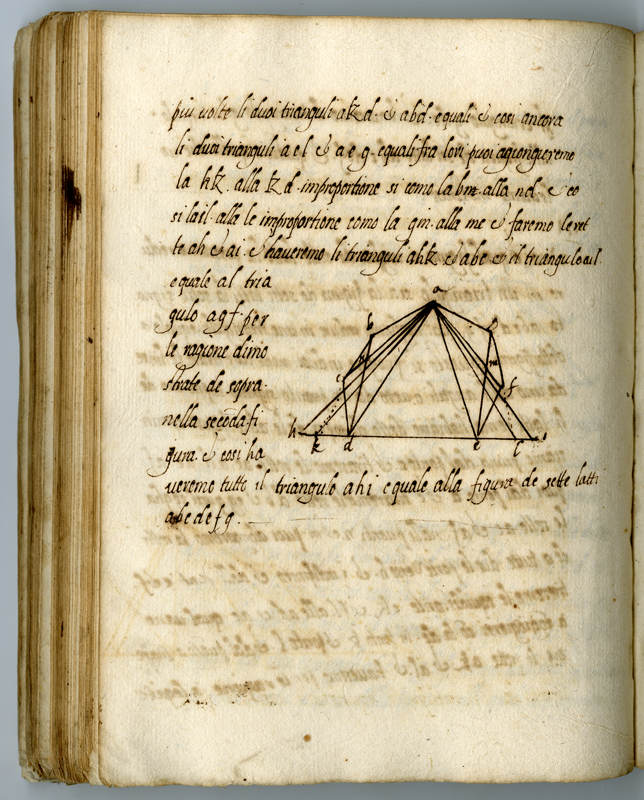 piu volte li duoi trianguli akd. & abd. equali & cosi ancora
li duoi trianguli a e l & a e g. equali fra loro puoi agiongieremo
la hk. alla kd. improportione si como la bn. alla nd. & co
si la il. alla le improportione como la gm. alla me & faremo le ret
te ah & ai. & haveremo li trianguli ahk & abc & il triangulo ail.
equale al tria
gulo agf. per
le ragione dimo
strate de sopra.
nella secōda fi
gura. & cosi ha
veremo tutto il triangulo ahi equale alla figura de sette latti
abcdefg.
a
b
g
n
m
c
f
h
k
d
e
l
i